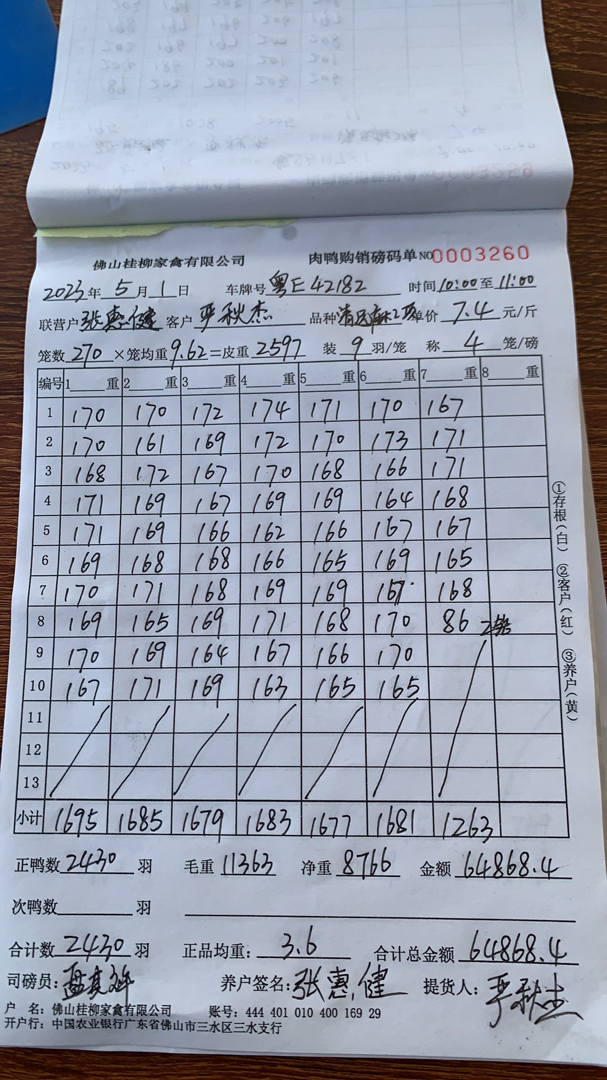 0003259
佛山桂柳家禽有限公司 肉鸭购销磅码单 NO 0003260
2023年5月1日 车牌号 粤E42182 时间10:00至11:00
联营户 张惠健 客户 严秋杰 品种 单价 7.4 元/斤
笼数 270 ×笼均重 9.62 =皮重 2597 装 9 羽/笼 称 4 笼/磅
编号 1 重 2 重 3 重 4 重 5 重 6 重 7 重 8 重
1 170 170 172 174 171 170 167
2 170 161 169 172 170 173 171
3 168 172 167 170 168 166 171
4 171 169 167 169 169 164 168
5 171 169 166 162 166 167 167
6 169 168 168 166 165 169 165
7 170 171 168 169 169 167 168
8 169 165 169 171 168 170 86 2笼
9 170 169 164 167 166 170
10 167 171 169 163 165 165
11
12
13
小计 1695 1685 1679 1683 1677 1681 1263
①存根(白) ②客户(红) ③养户(黄)
正鸭数 2430 羽 毛重 11363 净重 8766 金额 64868.4
次鸭数 羽
合计数 2430 羽 正品均重: 3.6 合计总金额 64868.4
司磅员: 养户签名: 张惠健 提货人: 严秋杰
户 名: 佛山桂柳家禽有限公司 账号: 444 401 010 400 169 29
开户行: 中国农业银行广东省佛山市三水区三水支行